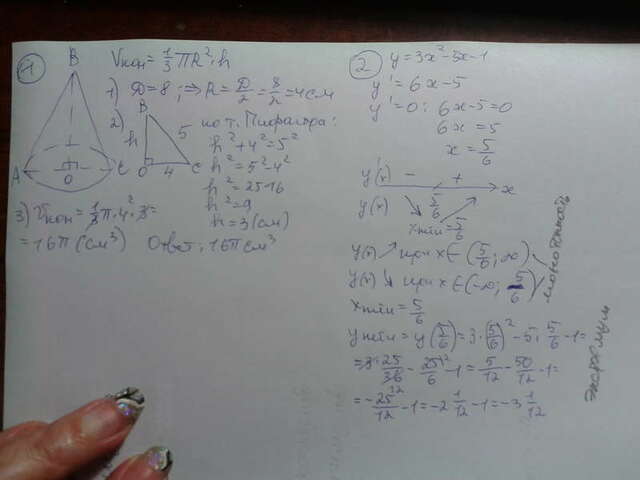 1
B
Vкон = 1/3 πR²·h
1) D=8; ⇒ R = D/2 = 8/2 = 4 см
2) по т. Пифагора:
B
h 5
O 4 C
A O C
h²+4²=5²
h²=5²-4²
h²=25-16
h²=9
h=3(см)
3) Vкон = 1/3 π·4²·3=
=16π(см³) Ответ: 16π см³
2
y=3x²-5x-1
y'=6x-5
y'=0: 6x-5=0
6x=5
x=5/6
y'(x) - + x
y(x) ↘ 5/6 ↗
xmin=5/6
y(x) ↗ при x∈(5/6; ∞)
y(x) ↘ при x∈(-∞; 5/6)
монотонность
xmin=5/6
ymin=y(5/6)=3·(5/6)²-5·5/6-1=
=3·25/36-25/6-1=5/12-50/12-1=
=-25/12-1=-2 1/12-1=-3 1/12